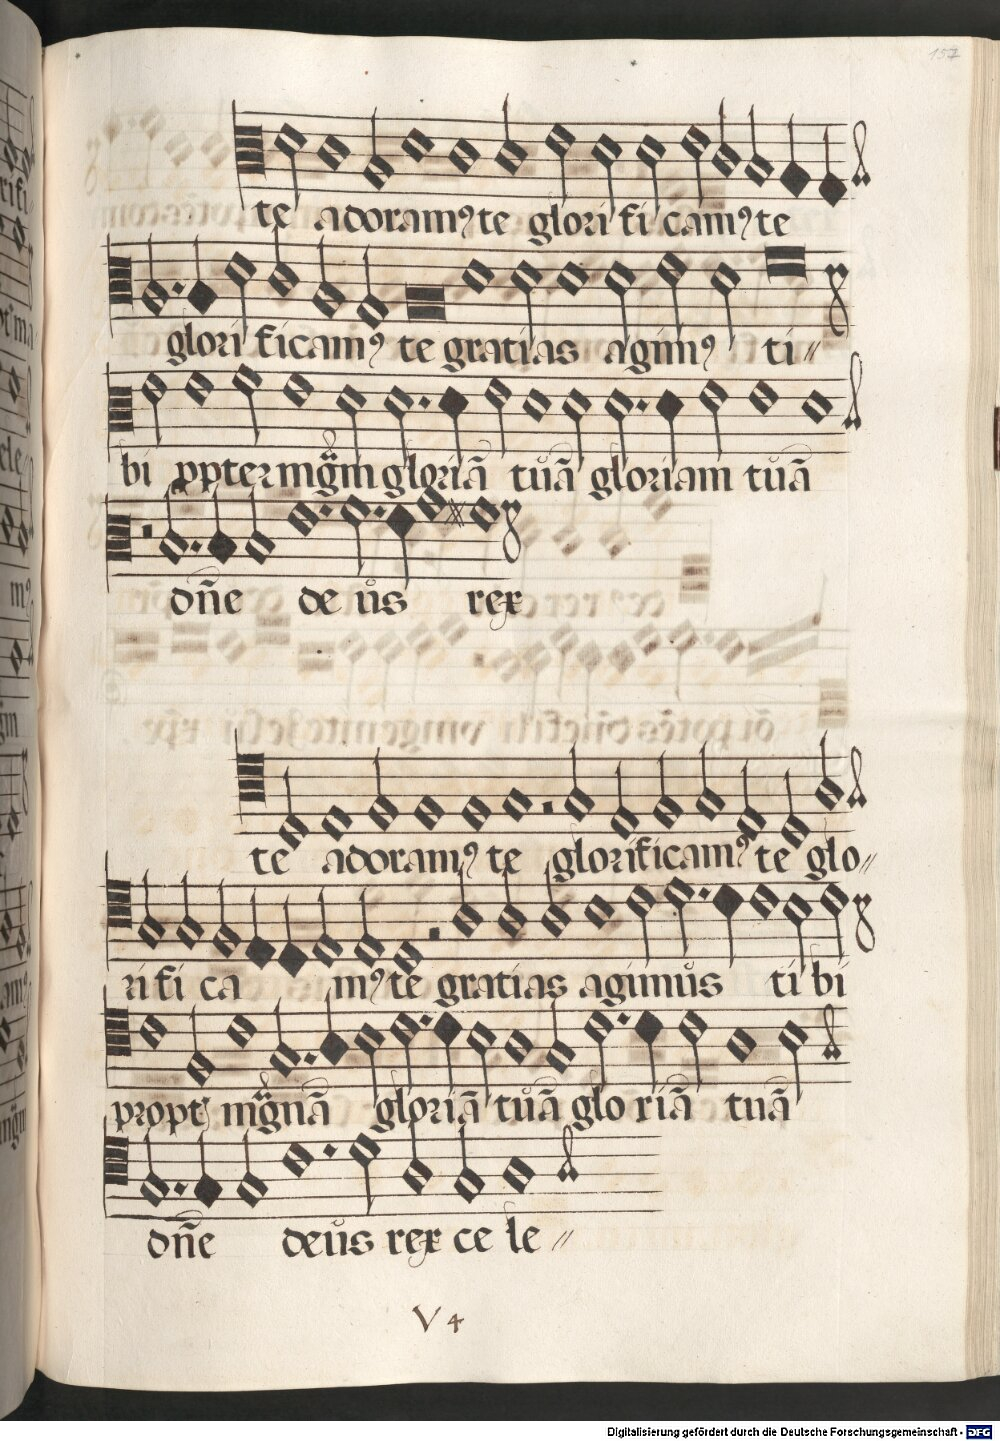 157
te adoram⁹ te glori fi cam⁹ te
glori ficam⁹ te gratias agim⁹ ti〃
bi ꝓpter mgᷓm gloriā tuā gloriam tuā
dñe de us rex
te adoram⁹ te glorificam⁹ te glo〃
ri fi ca m⁹ te gratias agimus ti bi
propt mgnā gloriā tuā glo riā tuā
dñe deus rex ce le〃
V 4
Digitalisierung gefördert durch die Deutsche Forschungsgemeinschaft - DFG